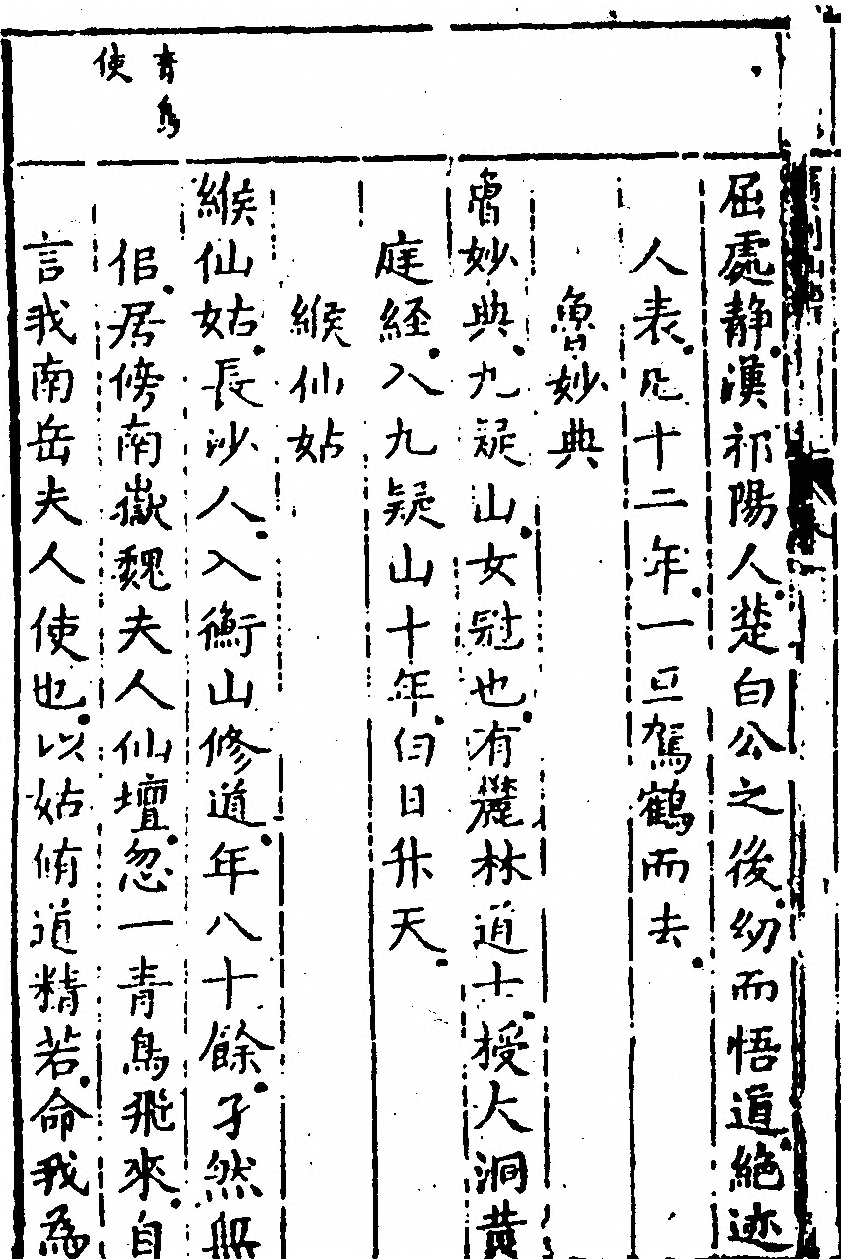 屈處靜漢祁陽人楚白公之後幼而悟道絶迹
人表凡十二年一旦駕鶴而去
魯妙典
魯妙典九疑山女冠也有麓林道士授大洞黄
庭経入九疑山十年白日升天
緱仙姑
緱仙姑長沙人入衡山修道年八十餘孑然無
侣居傍南嶽魏夫人仙壇忽一青鳥飛來自
言我南岳夫人使也以姑脩道精苦命我為
青鳥
使